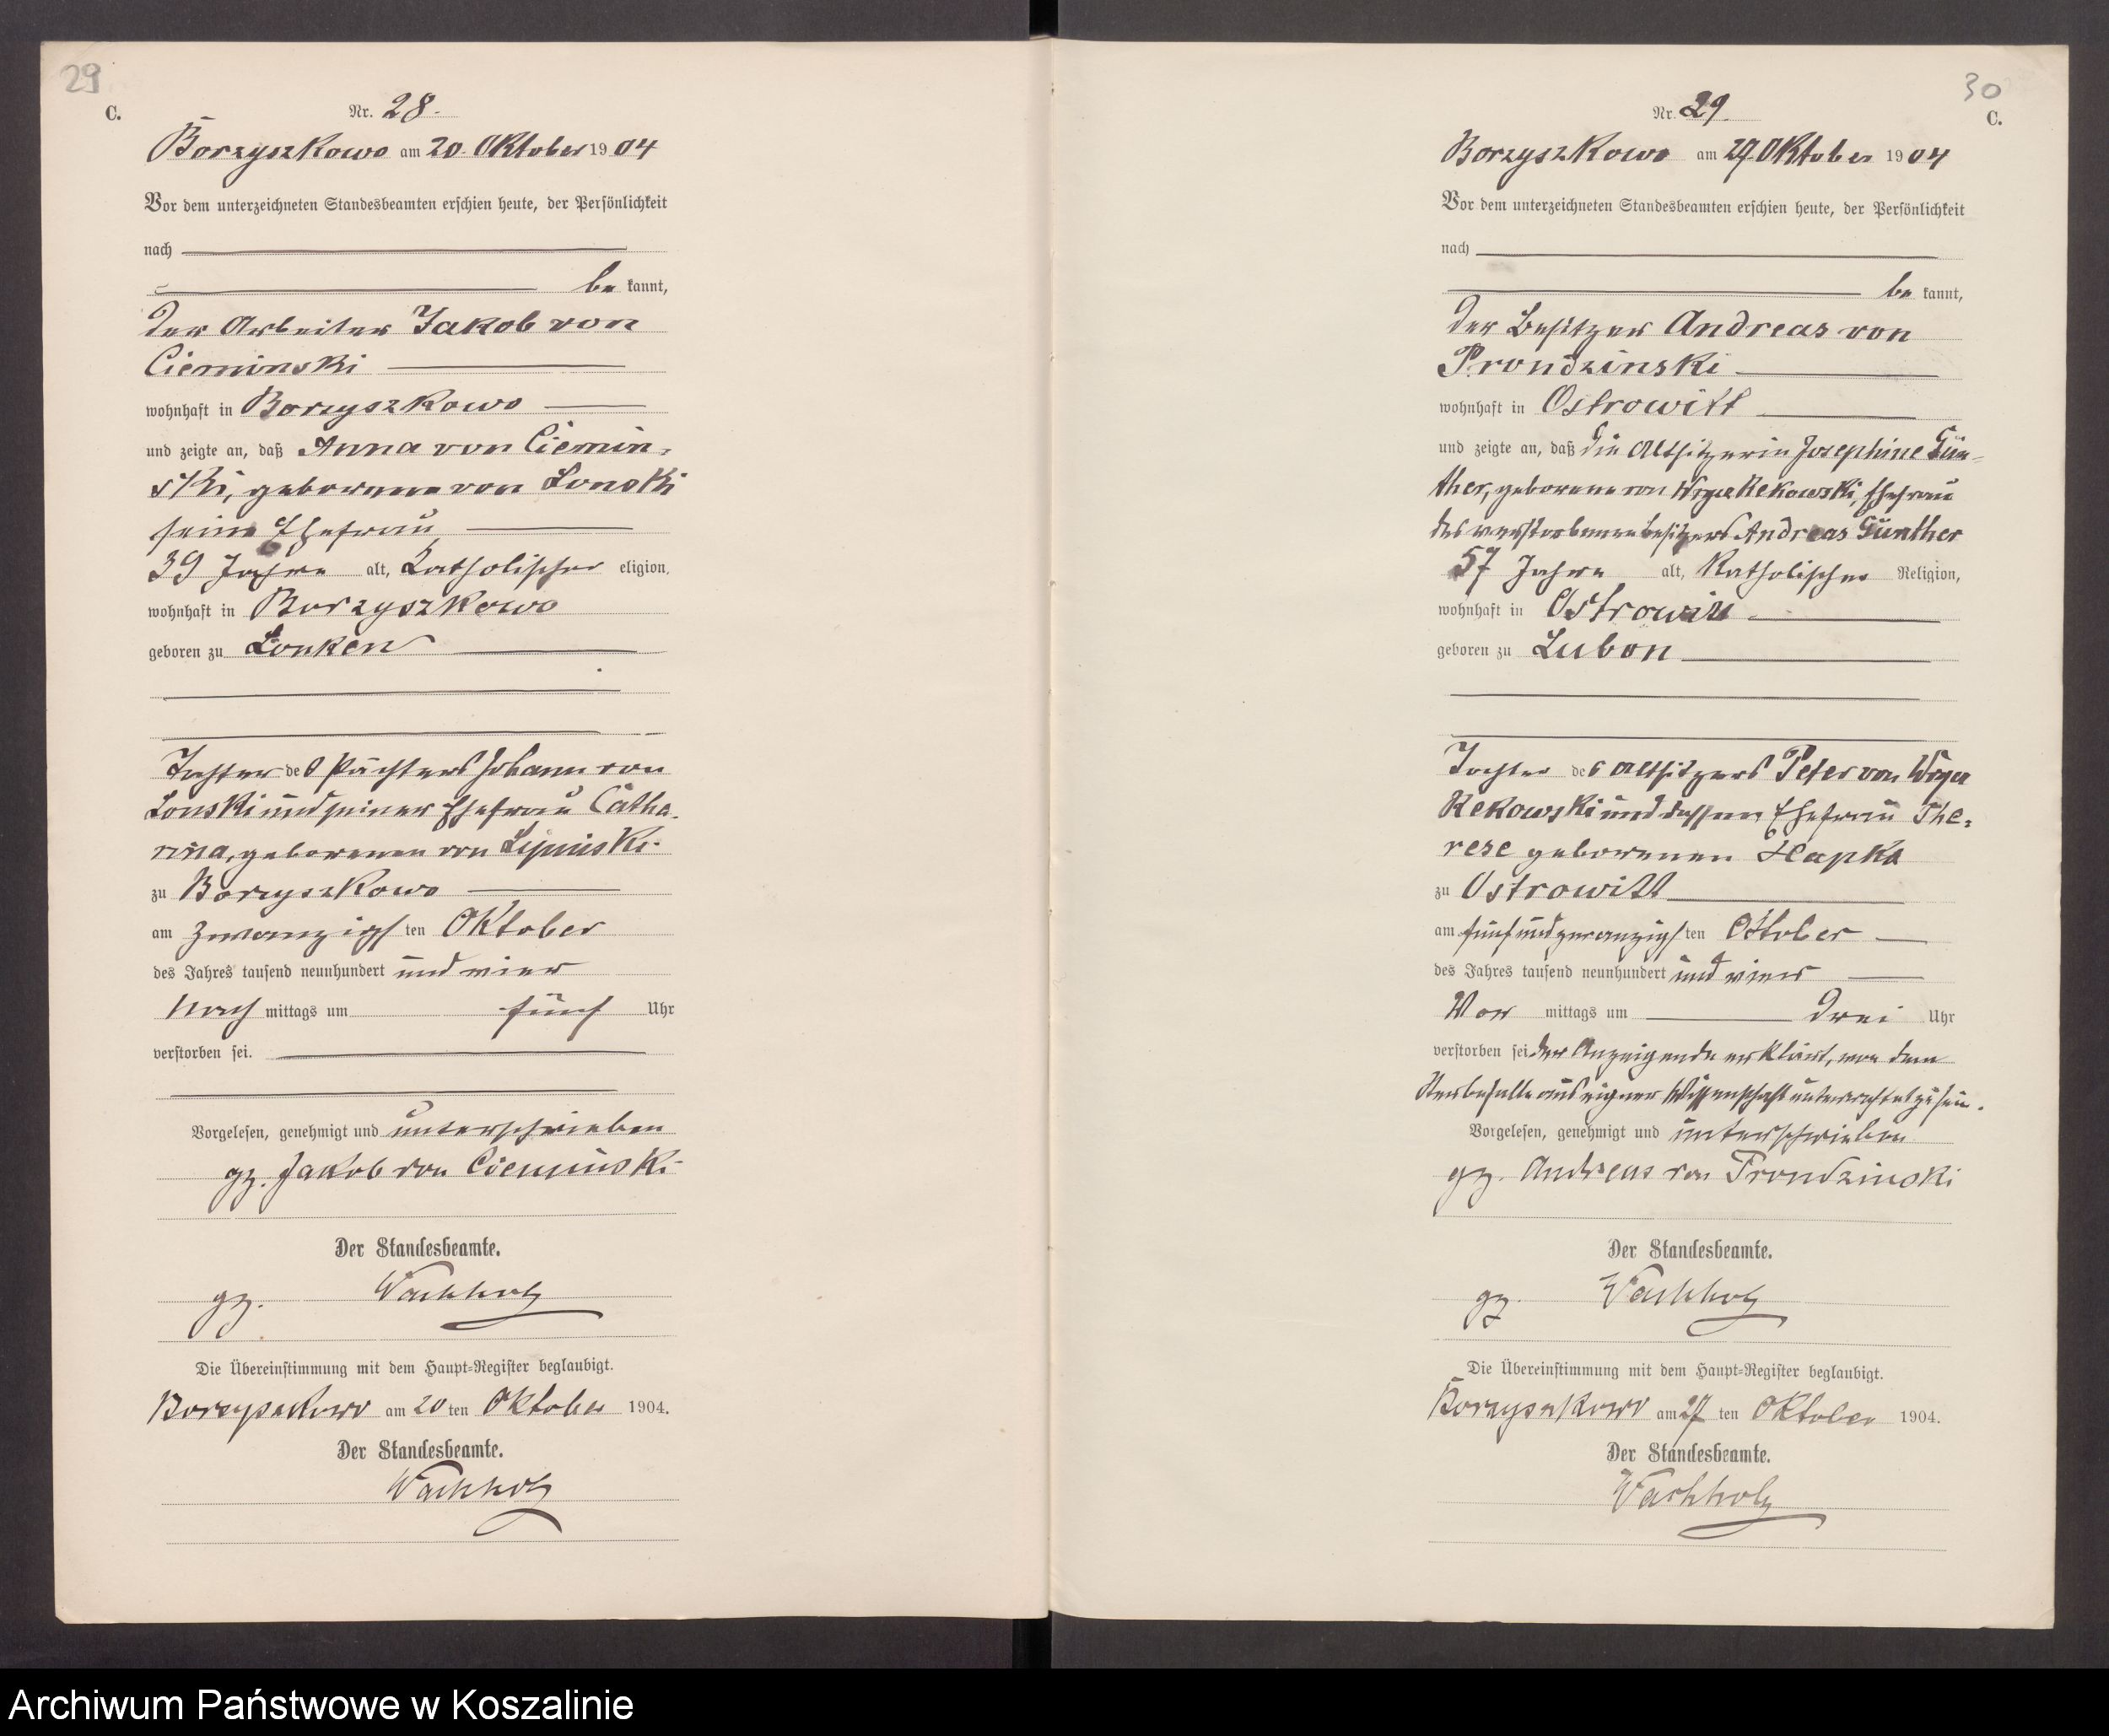 29
C.
Nr. 28.
Borzyszkowo am 20. Oktober 1904
Vor dem unterzeichneten Standesbeamten erschien heute, der Persönlichkeit
nach
be kannt,
der Arbeiter Jakob von
Cieminski
wohnhaft in Borzyszkowo
und zeigte an, daß Anna von Ciemin-
ski, geborene von Lonski
seine Ehefrau
39 Jahre alt, katholischer eligion,
wohnhaft in Borzyszkowo
geboren zu Lonken
Tochter des Pächters Johann von
Lonski und seiner Ehefrau Catha-
rina, geborenen von Lipinski.
zu Borzyszkowo
am zwanzigsten Oktober
des Jahres tausend neunhundert und vier
Nach mittags um fünf Uhr
verstorben sei.
Vorgelesen, genehmigt und unterschrieben
gz. Jakob von Cieminski
Der Standesbeamte.
gz. Wachholz
Die Übereinstimmung mit dem Haupt-Register beglaubigt.
Borzyszkowo am 20 ten Oktober 1904.
Der Standesbeamte.
Wachholz
30
C.
Nr. 29.
Borzyszkowo am 27. Oktober 1904
Vor dem unterzeichneten Standesbeamten erschien heute, der Persönlichkeit
nach
be kannt,
der Besitzer Andreas von
Prondzinski
wohnhaft in Ostrowitt
und zeigte an, daß die Altsitzerin Josephine Gün-
ther, geborene von Wryca Rekowski, Ehefrau
des verstorbenen Besitzers Andreas Günther
57 Jahre alt, katholischer Religion,
wohnhaft in Ostrowitt
geboren zu Lubon
Tochter des Altsitzers Peter von Wryca
Rekowski und dessen Ehefrau The-
rese geborenen Hapka
zu Ostrowitt
am fünfundzwanzigsten Oktober
des Jahres tausend neunhundert und vier
Vor mittags um drei Uhr
verstorben sei. Der Anzeigende erklärt, von dem
Sterbefalle aus eigner Wissenschaft unterrichtet zu sein.
Vorgelesen, genehmigt und unterschrieben
gz. Andreas von Prondzinski
Der Standesbeamte.
gz. Wachholz
Die Übereinstimmung mit dem Haupt-Register beglaubigt.
Borzyszkowo am 27 ten Oktober 1904.
Der Standesbeamte.
Wachholz
Archiwum Państwowe w Koszalinie